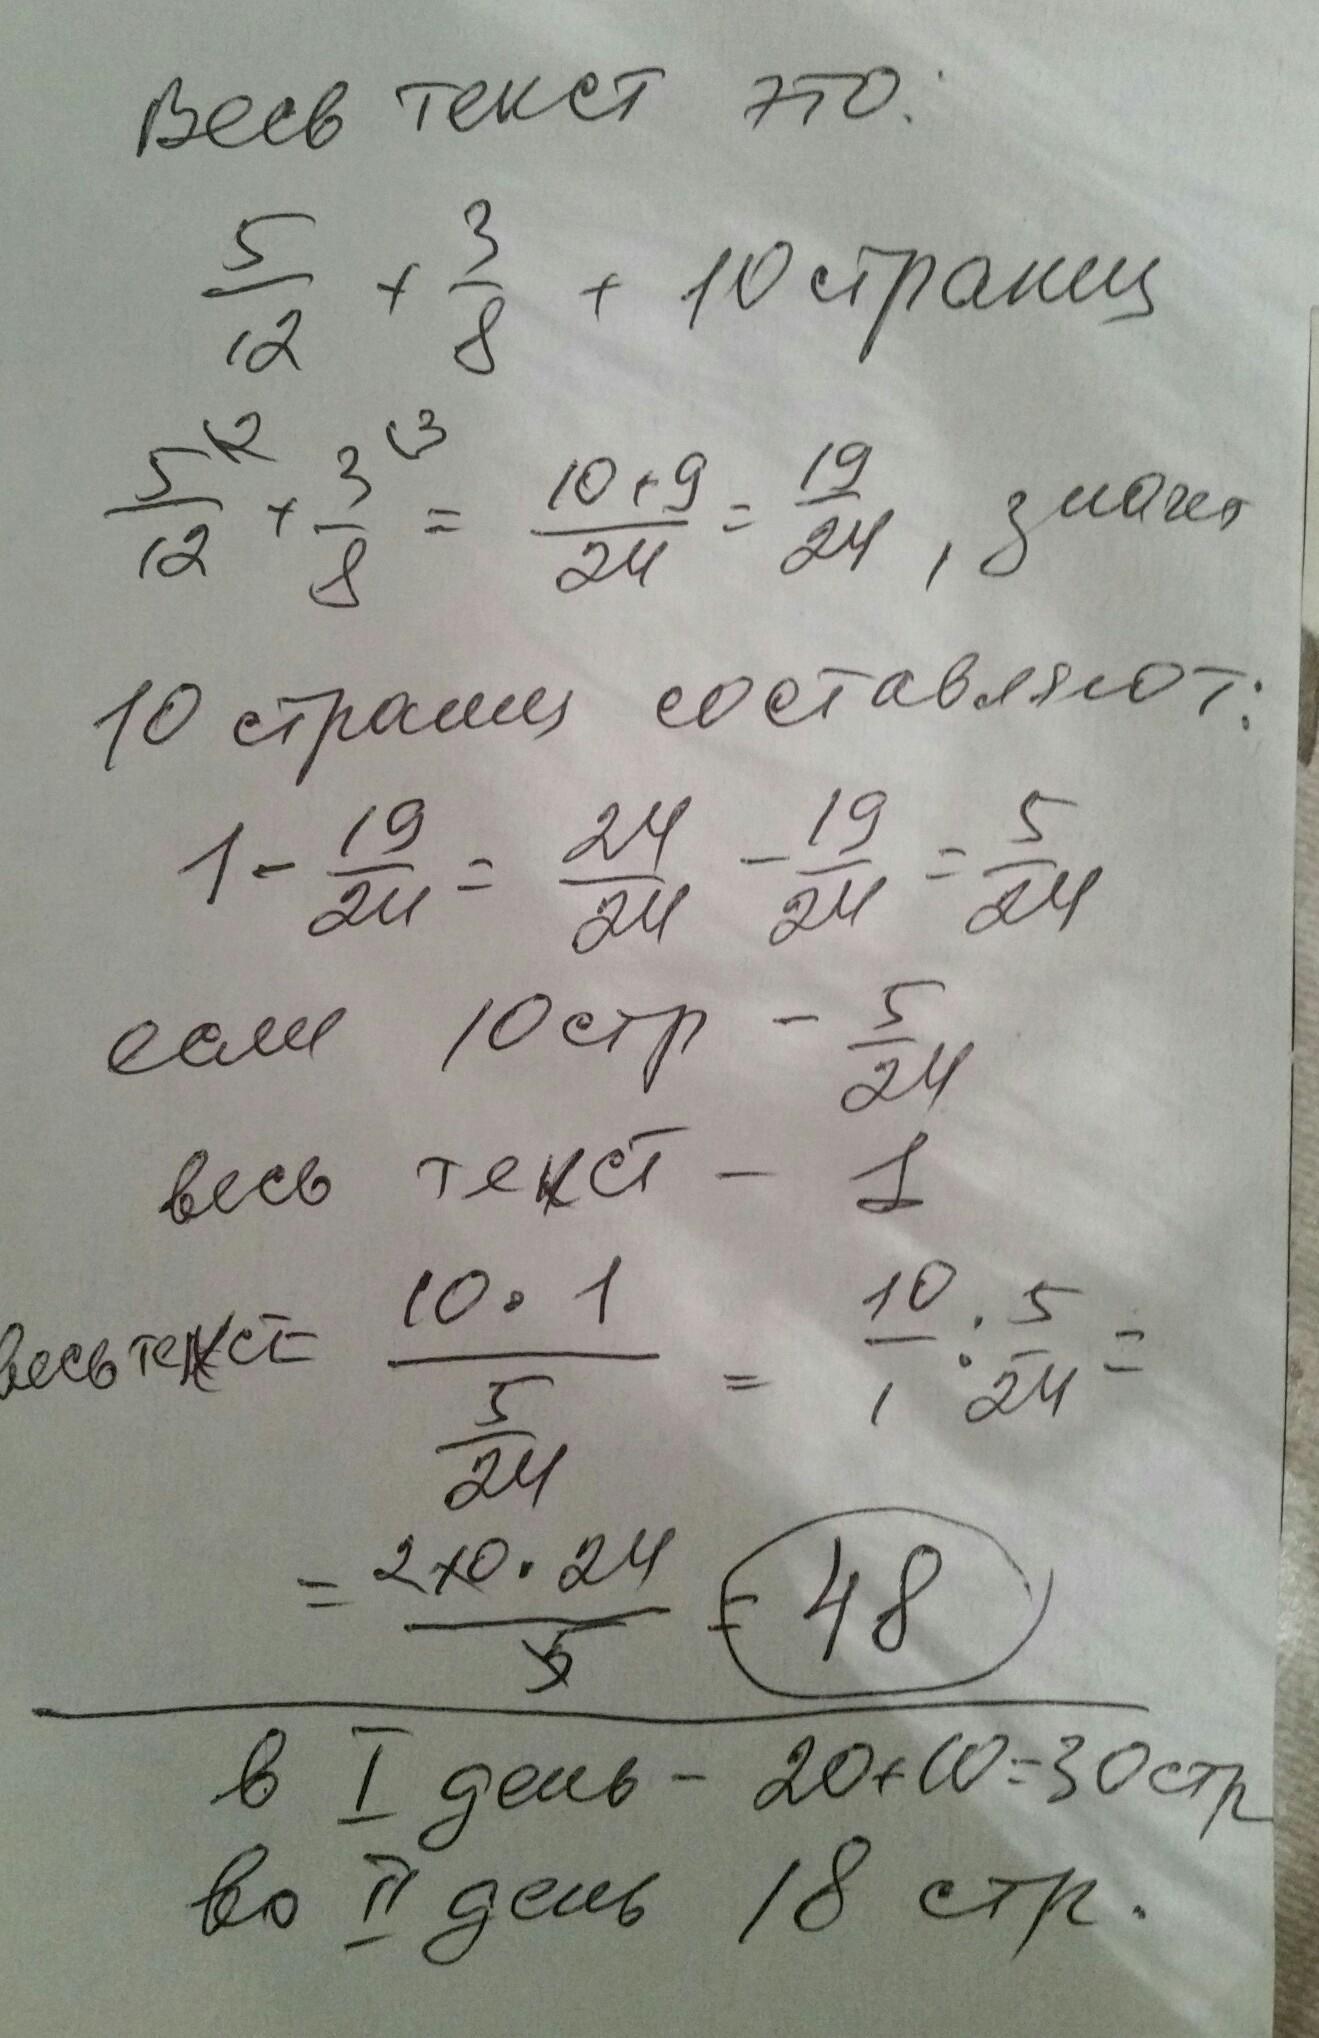 Весь текст это:
5/12 + 3/8 + 10 страниц
5/12 (2 + 3/8 (3 = 10+9/24 = 19/24, значит
10 страниц составляют:
1 - 19/24 = 24/24 - 19/24 = 5/24
если 10 стр - 5/24
весь текст - 1
весь текст = 10 · 1 / 5/24 = 10/1 : 5/24 =
= 2 10 · 24 / 5 = 48
в I день - 20+10=30 стр
во II день 18 стр.